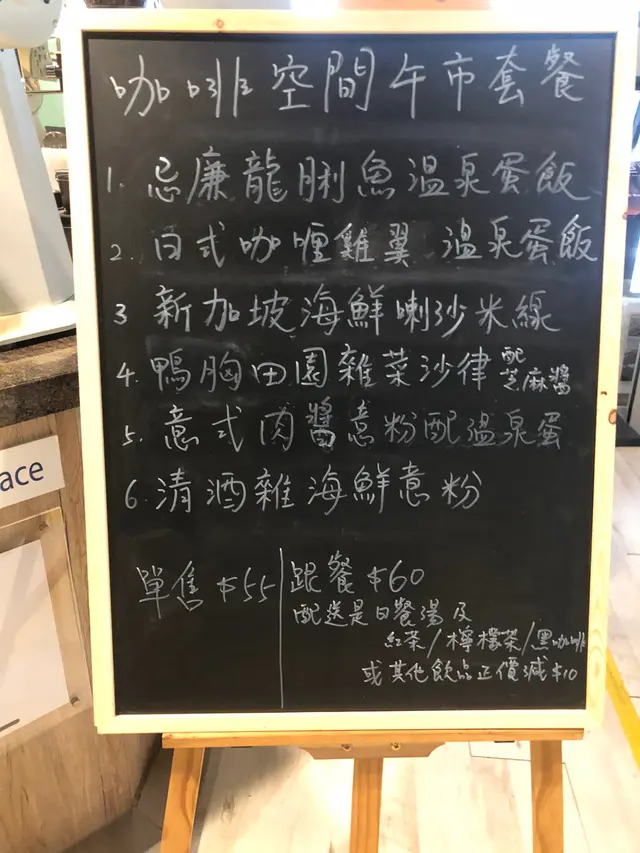 咖啡空間午市套餐
1. 忌廉龍脷魚溫泉蛋飯
2. 日式咖喱雞翼 溫泉蛋飯
3 新加坡海鮮喇沙米線
4. 鴨胸田園雜菜沙律配芝麻醬
5. 意式肉醬意粉配溫泉蛋
6. 清酒雜海鮮意粉
單售 $55
跟餐 $60
配送是日餐湯及
紅茶/檸檬茶/黑咖啡
或其他飲品正價減$10
ace